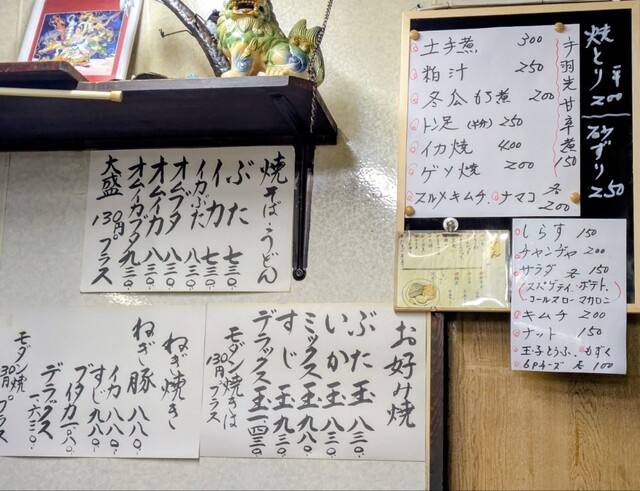 焼そば・うどん
ぶた 七三〇.
イカ 七三〇.
イカぶた 八三〇.
オムブタ 八三〇.
オムイカ 八三〇.
オムイカブタ 九三〇.
大盛 130円。プラス
お好み焼
ぶた玉 八三〇.
いか玉 八三〇.
ミックス玉 九八〇.
すじ玉 九三〇.
デラックス玉 一.四三〇.
モダン焼きは
130円。プラス
ねぎ焼き
ねぎ豚 八八〇.
イカ 八八〇.
すじ 九八〇.
ブイカ 一.〇八〇.
デラックス
一.六三〇.
モダン焼
130円。プラス
焼とり 一平 200
砂ずり 250
手羽先甘辛煮 150
土手煮 300
粕汁 250
冬瓜
煮 200
トン足 250
イカ焼 400
ゲソ焼 200
スルメキムチ、ナマコ 各200
しらす 150
チャンヂャ 200
サラダ 各150
(スパゲティ・ポテト、
コールスロー マカロニ)
キムチ 200
ナット 150
玉子とうふ、もずく
6Pチーズ 各100